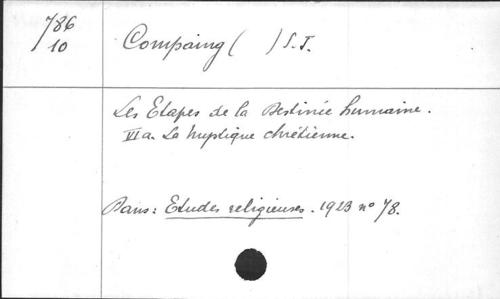 786
10
Compaing ( ) S.J.
Les Etapes de la Destinée humaine.
VIa. La mystique chrétienne.
Paris: Etudes religieuses. 1923 nº 78.